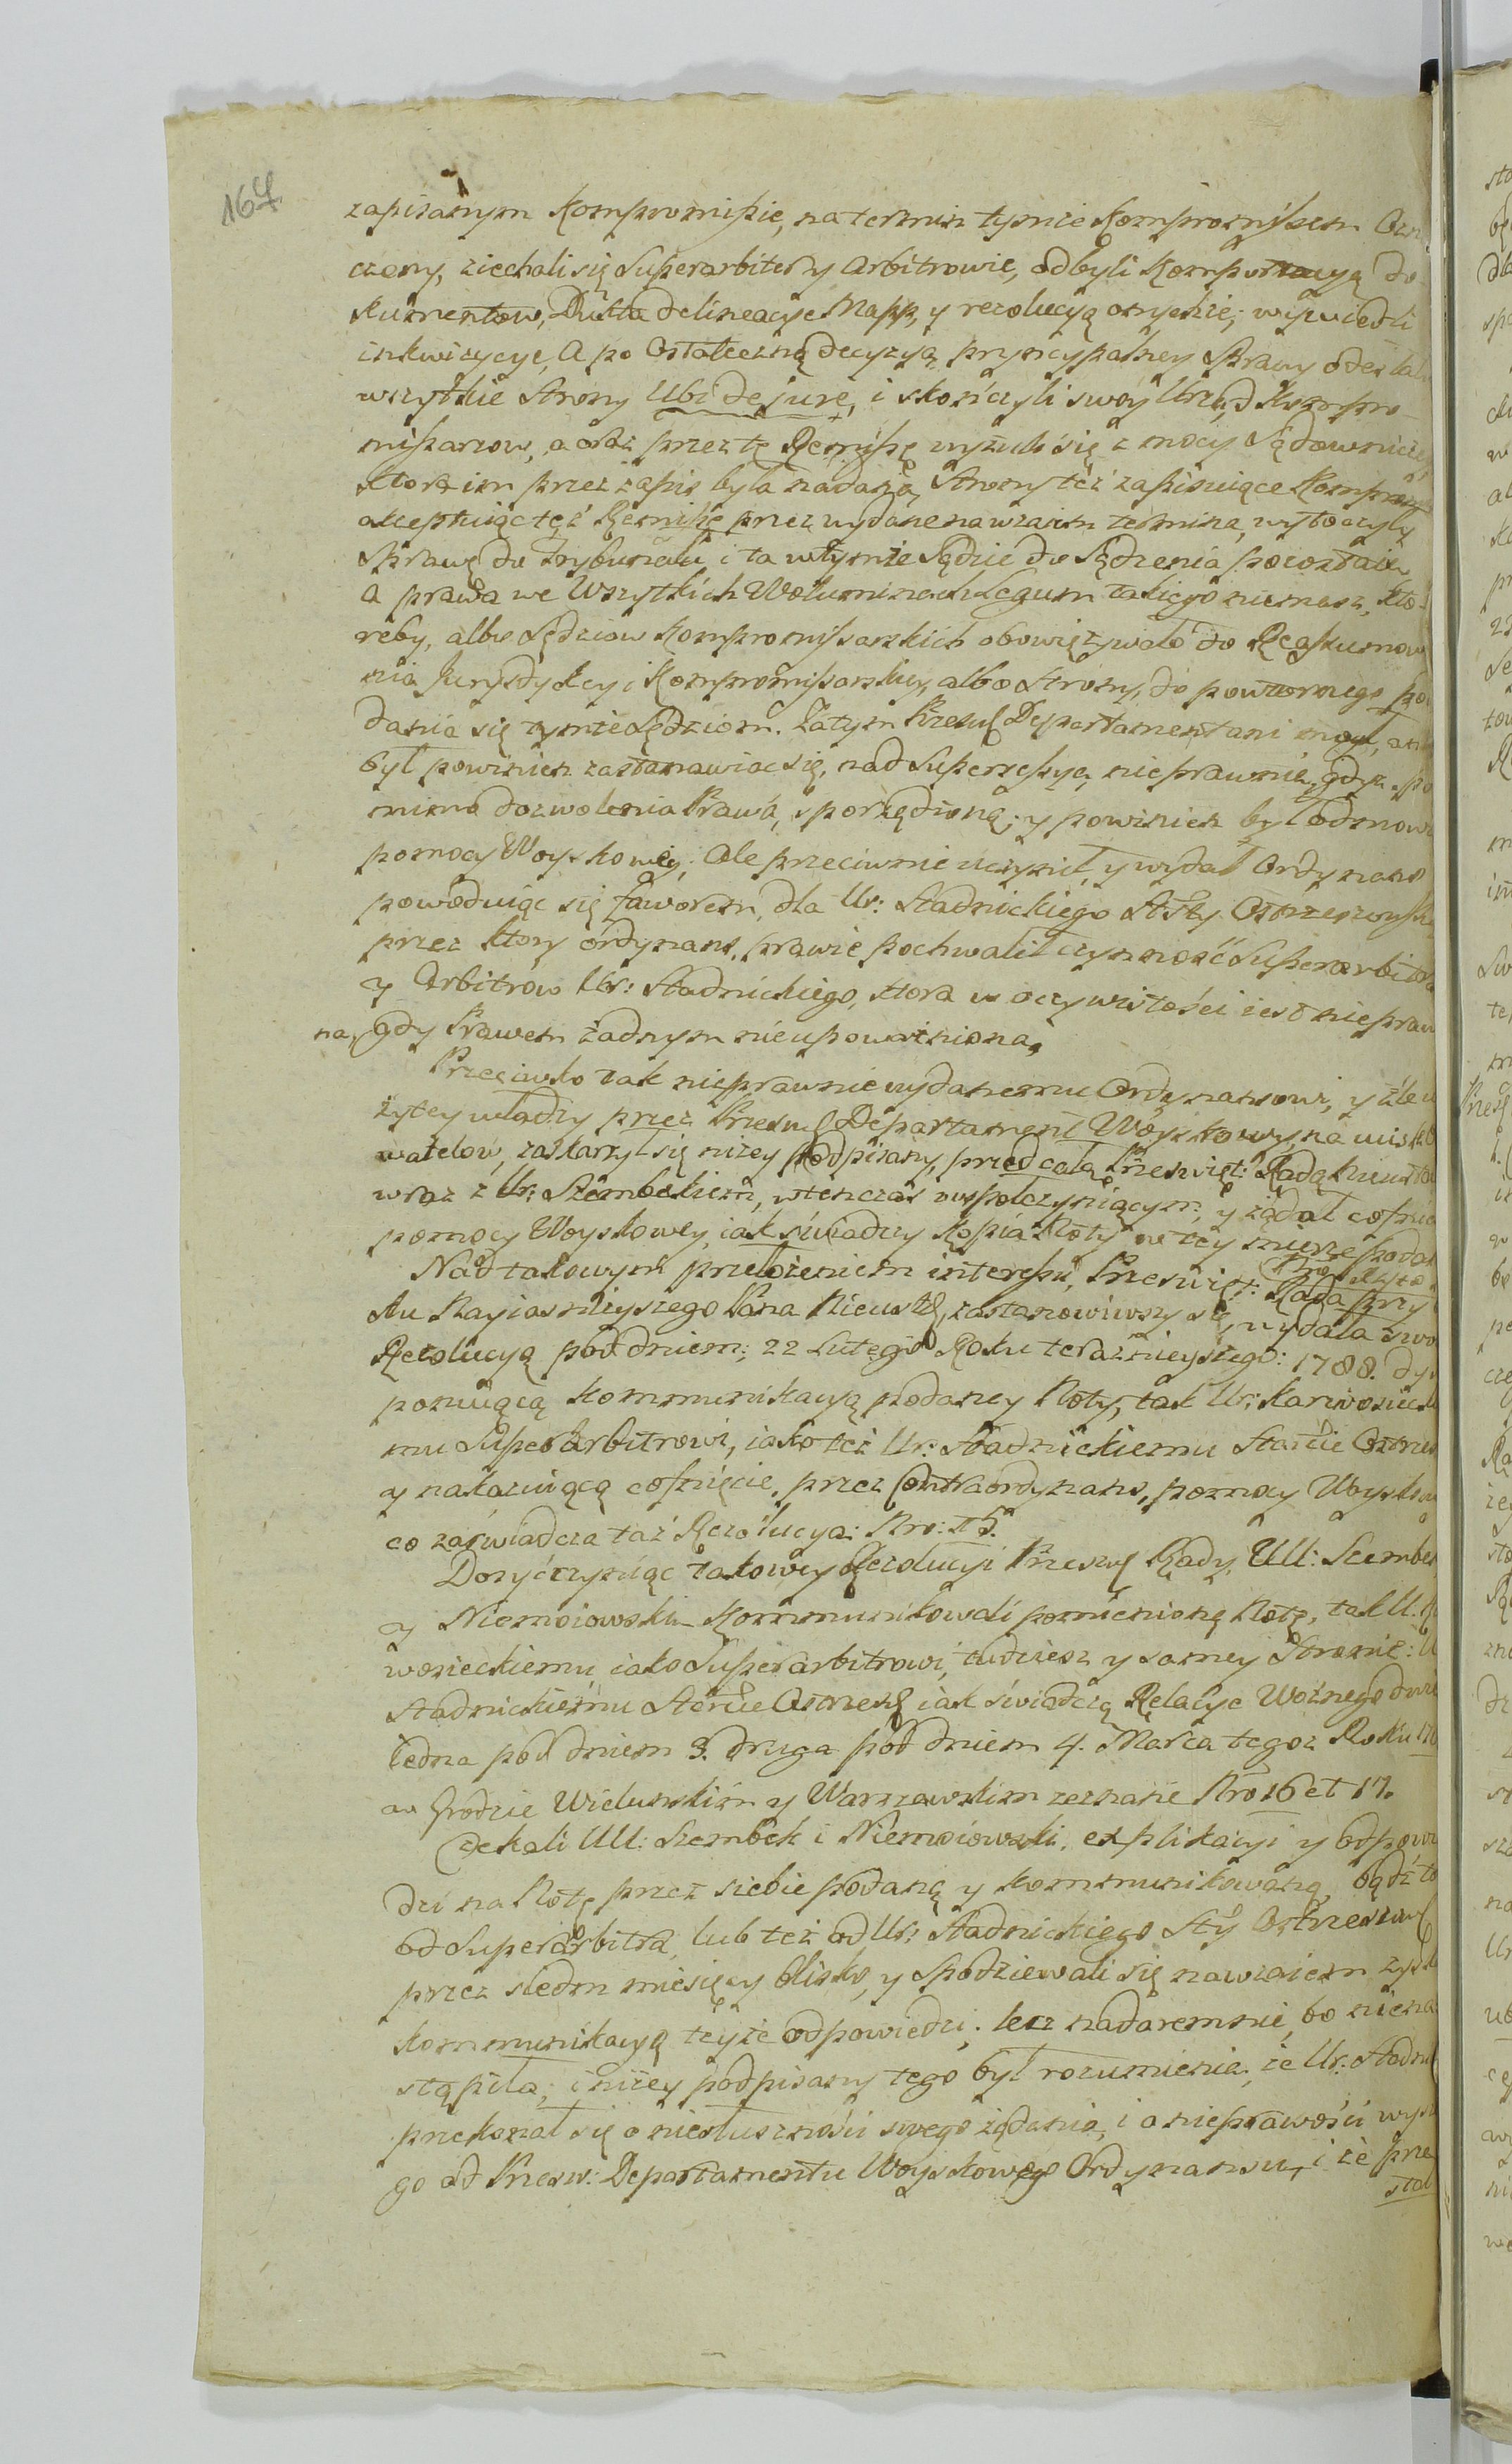 167
zapisanym Kompromissie, na termin tymże Kompromissem Ozn
czony, ziechali się Superarbiter y Arbitrowie, odbyli Komportacyą do
kumentow, Dukta delineacye Mapp, y rezolucyą onychże; wywiedli
inkwizycye, a po Ostateczną decyzyą pryncypalney Sprawy odesłali
wszytkie Strony Ubi de jure, i skończyli swoy Urząd Kompro-
missarzow, a oraz przez tę Remissę wyzuli się z mocy Sądowniczey
ktora im przez zapis była nadana, Strony też zapisuiące Kompromis
akceptuiąc tęż Remissę przez wydane nawzaiem termina, wytoczyły
Sprawę do Trybunału i ta w tymże Sądzie do Sądzenia pozostaie
a prawa we Wszytkich Woluminach Legum takiego niemasz, kto-
reby, albo Sędziow Kompromissarskich obowiązywało do Reassumowa
nia Jurysdykcyi Kompromissarskiey, albo Strony, do powtornego pod
dania się tymże Sędziom. Zatym Przesw Departament ani mogł, ani
był powinien zastanawiac się, nad Superzessyą nieprawnie, gdyż po
mimo dozwolenia Prawa, sporządzoną; y powinien był odmowi
pomocy Woyskowey; Ale przeciwnie uczynił, y wydał Ordynans
powoduiąc się faworem, dla Ur: Stadnickiego Stty Ostrzeszowski
przez ktory ordynans, prawie pochwalił czynność Superarbitra
y Arbitrow Ur: Stadnickiego, ktora w oczywistości iest niepraw
na, gdy Prawem żadnym nieupoważniona.
Przeciwko tak nieprawnie wydanemu Ordynansowi, y źle u
żytey władzy przez Przesw Departament Woyskowy na ucisk Ob
watelow, zaskarżył się niżey podpisany, przed całą Przeswięt: Radą Nieusta
wraz z Ur: Szembekiem, wtenczas wspołczyniącym, y żądał cofnię
pomocy Woyskowey, iak świadczy Kopia Noty w tey mierze podan
Nad takowym przełożeniem interessu, Przeswięt: Rada przy
tku Nayiasnieyszego Pana Nieust, zastanowiwszy się, wydała swo
Rezolucyą pod dniem: 22 Lutego Roku teraznieyszego: 1788. dy
ponuiącą kommunikacyą podaney Noty, tak Ur: Karwosiecki
mu Superarbitrowi, iako też Ur: Stadnickiemu Starście Ostrzes
y nakazuiącą cofnięcie, przez Contraordynans, pomocy Woyskow
co zaświadcza taż Rezolucya: Nro: 15.
Dosyć czyniąc takowey Rezolucyi Przesw Rady, UU: Szembek
y Niemoiowski Kommunikowali pomienioną Notę, tak U. Ka
wosieckiemu, iako Superarbitrowi, tudziesz y samey Stronie: U
Stadnickiemu Starście Ostrzesz iak świadczą Relacye Woźnego dwie
iedna pod dniem 3. druga pod dniem 4. Marca tegoz Roku 178
w Grodzie Wieluńskim y Warszawskim zeznane Nro 16 et 17.
Czekali UU: Szembek i Niemoiowski, explikacyi y odpowie
dzi na Notę przez siebie podaną y kommunikowaną, bądź to
od Superarbitra, lub też od Ur: Stadnickiego Stty Ostrzeszow
przez siedm miesięcy blisko, y spodziewali się nawzaiem zysk
kommunikacyą teyże odpowiedzi; lecz nadaremnie, bo niena
stąpiła; i niżey podpisany tego był rozumienia; że Ur: Stadni
przekonał się o niesłuszności swego żądania, i o nieprawości wysz
go od Przesw: Departamentu Woyskowego Ordynansu, i że prze
stał